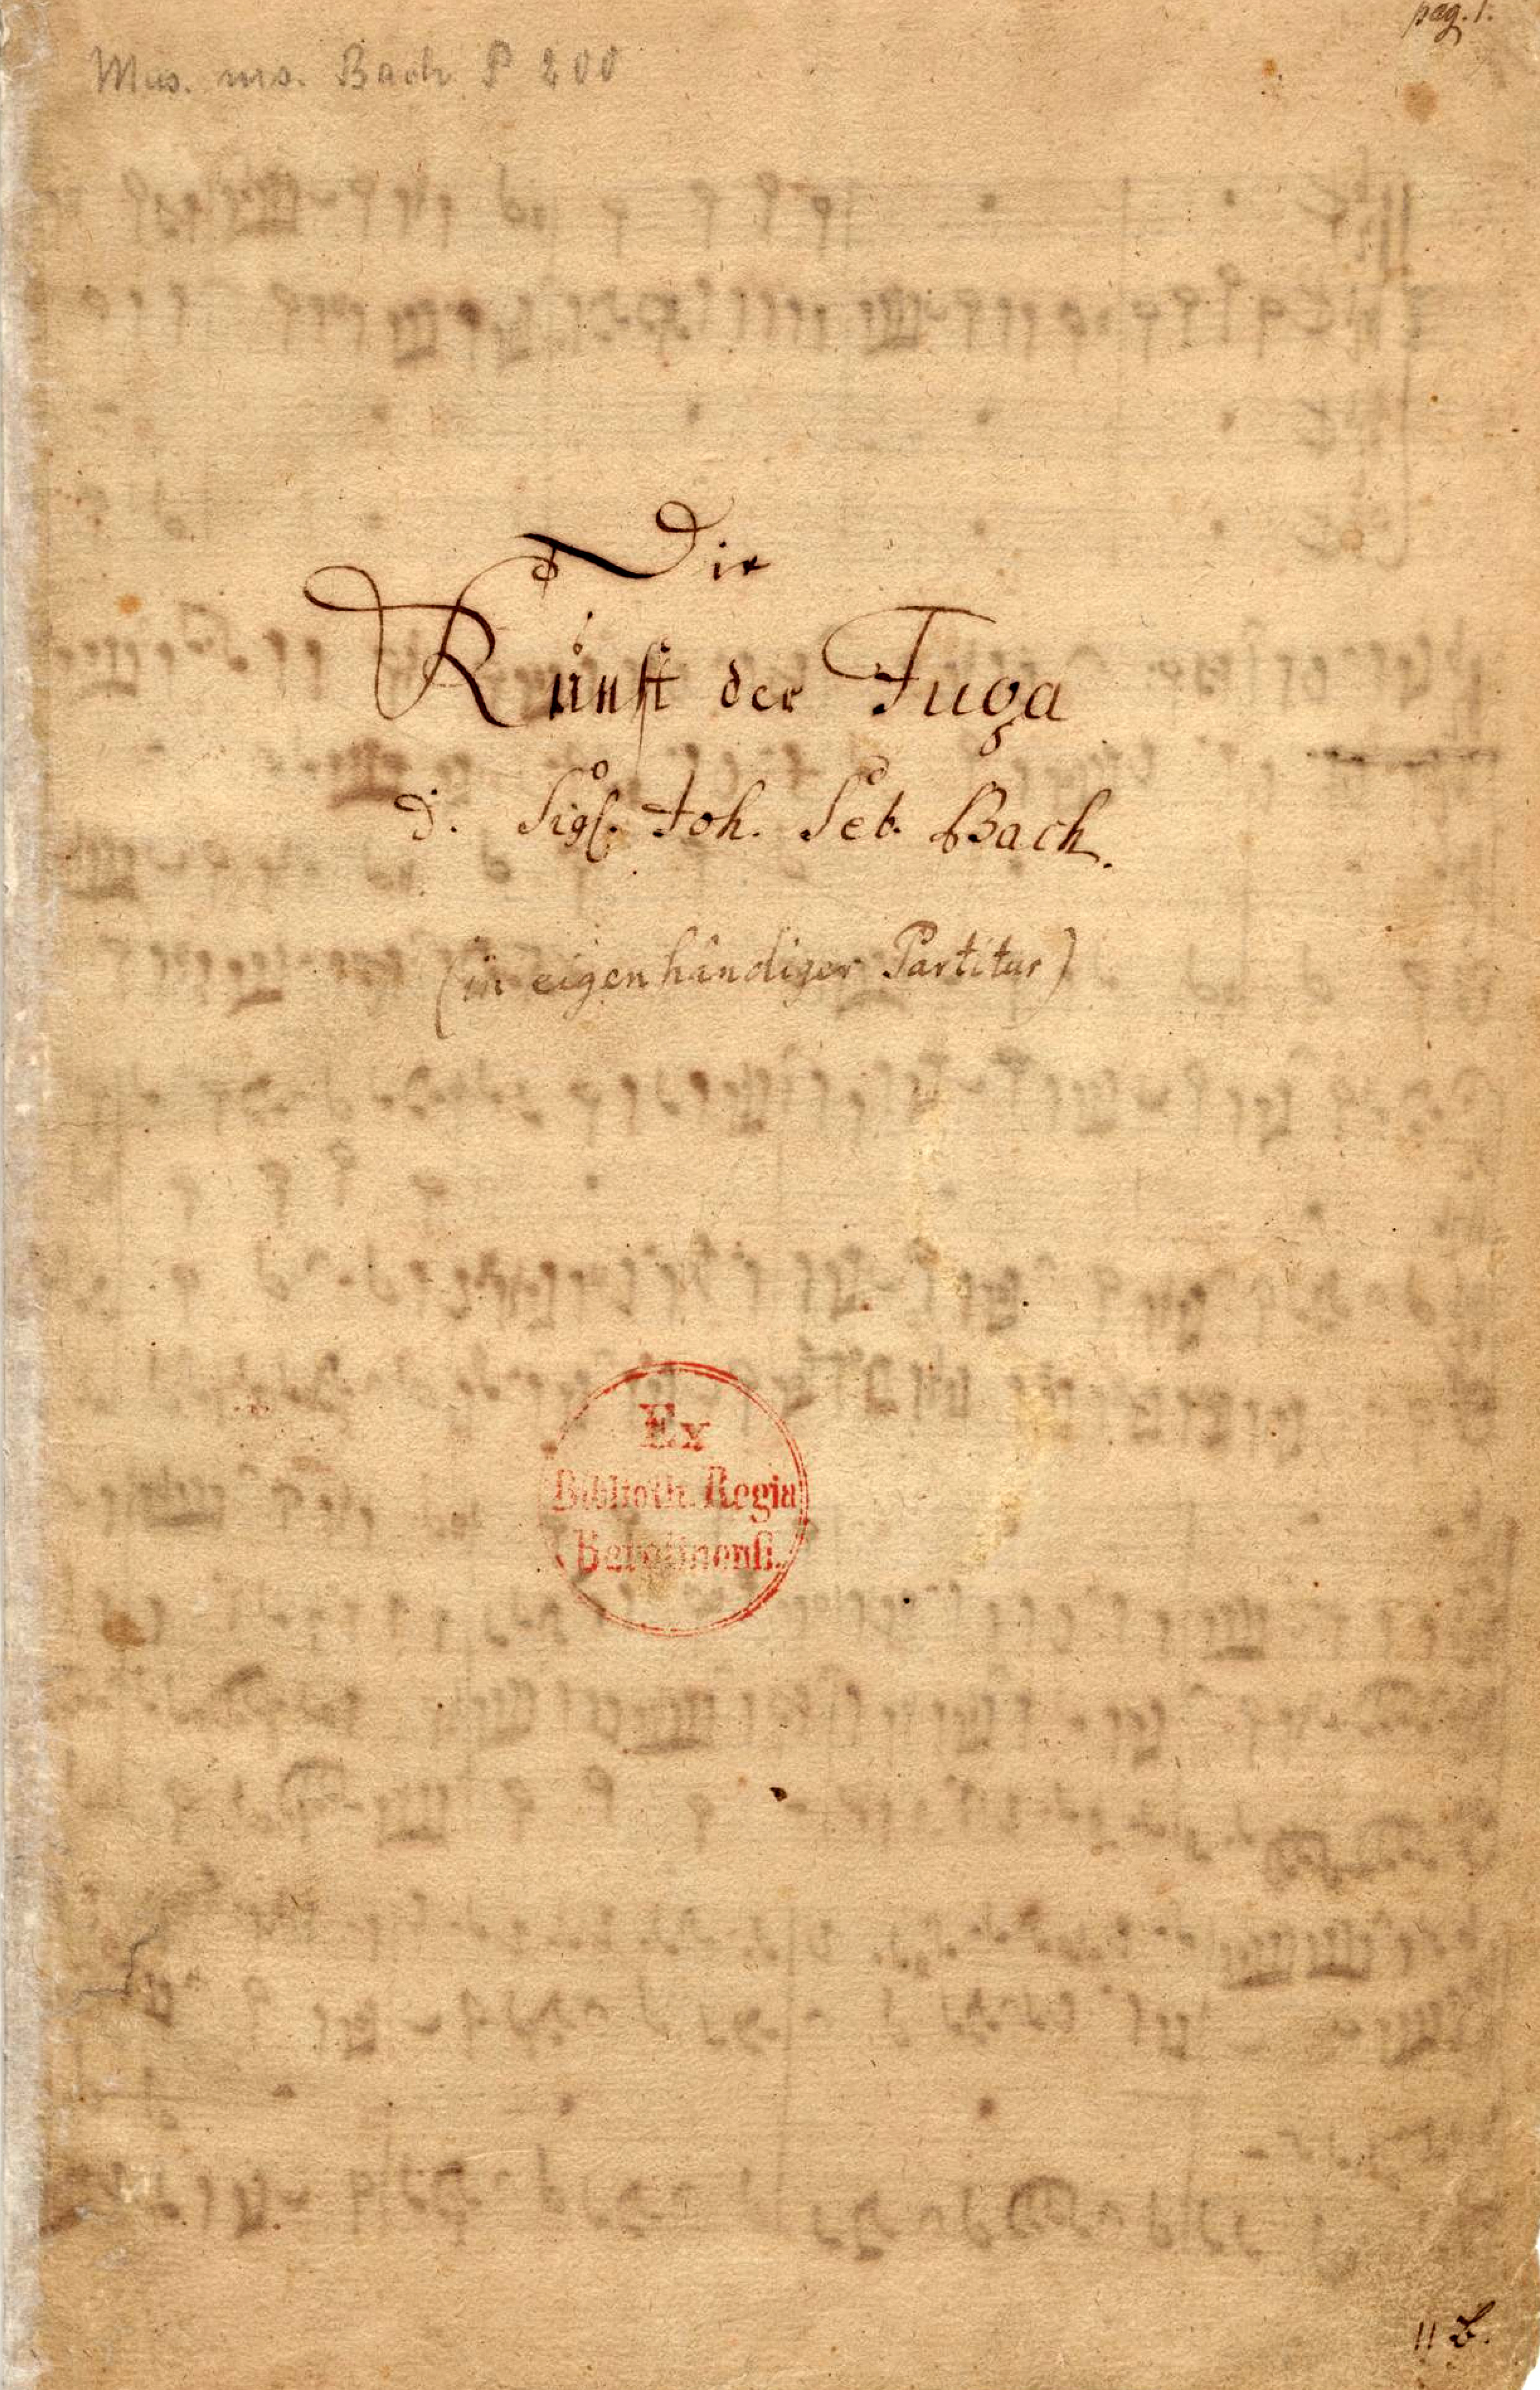 pag. 1.
Mus. ms. Bach P 200
Die
Kunst der Fuga
d. Sig. Joh. Seb. Bach.
(in eigenhändiger Partitur)
Ex
Biblioth. Regia
Berolinensi.